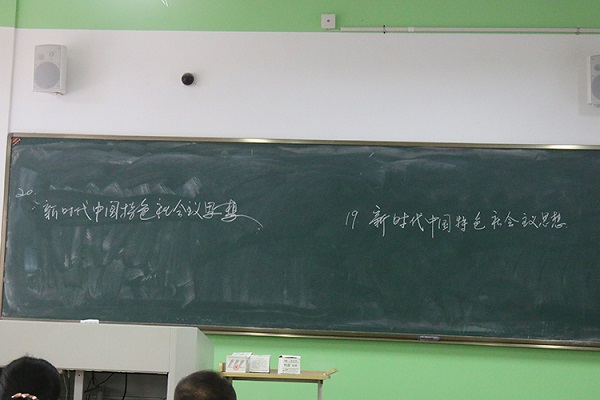 20.
新时代中国特色社会议思想
19 新时代中国特色社会议思想